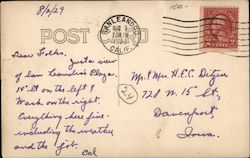 8/2/29
100-
SAN LEANDRO
AUG 2
1929
CALIF.
POST CARD
Dear Folks,
Just a view
of San Leandro's Plaza.
14th on the left &
Wash. on the right.
Everything here fine-
including the weather
and the job.
Cal
24
Mr. & Mrs. H.E.C. Ditzen
728 W. 15 St,
Davenport,
Iowa.